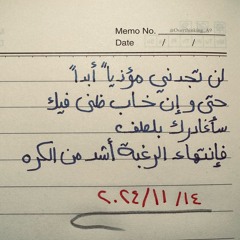 Memo No.
Date / /
لن تجدني مؤذياً أبداً
حتى وإن خاب ظني فيك
سأغادرك بلطف
فإنتهاء الرغبة أشد من الكره
٢٠٢٤/١١/١٤